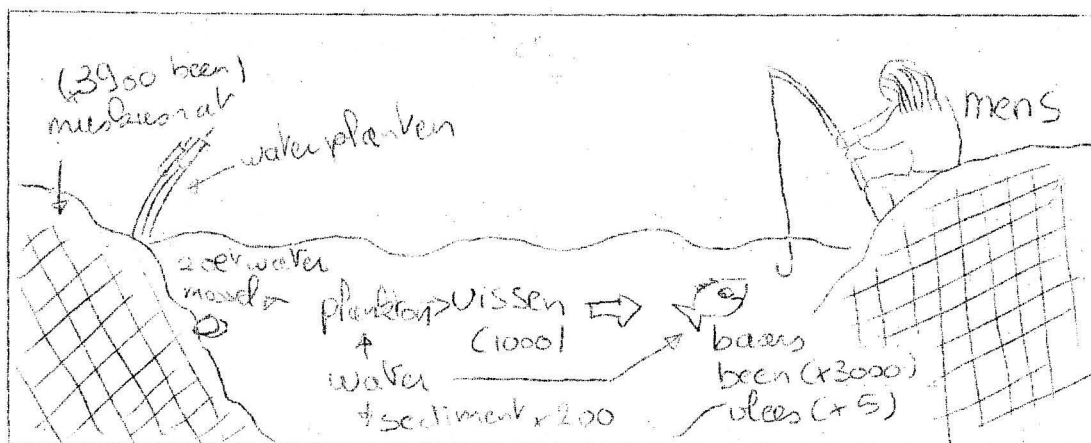 (3900 been)
muskusrat
waterplanten
mens
zoetwater
mossel
plankton > vissen
(1000)
water
+ sediment x 200
baars
been (x3000)
vlees (x5)